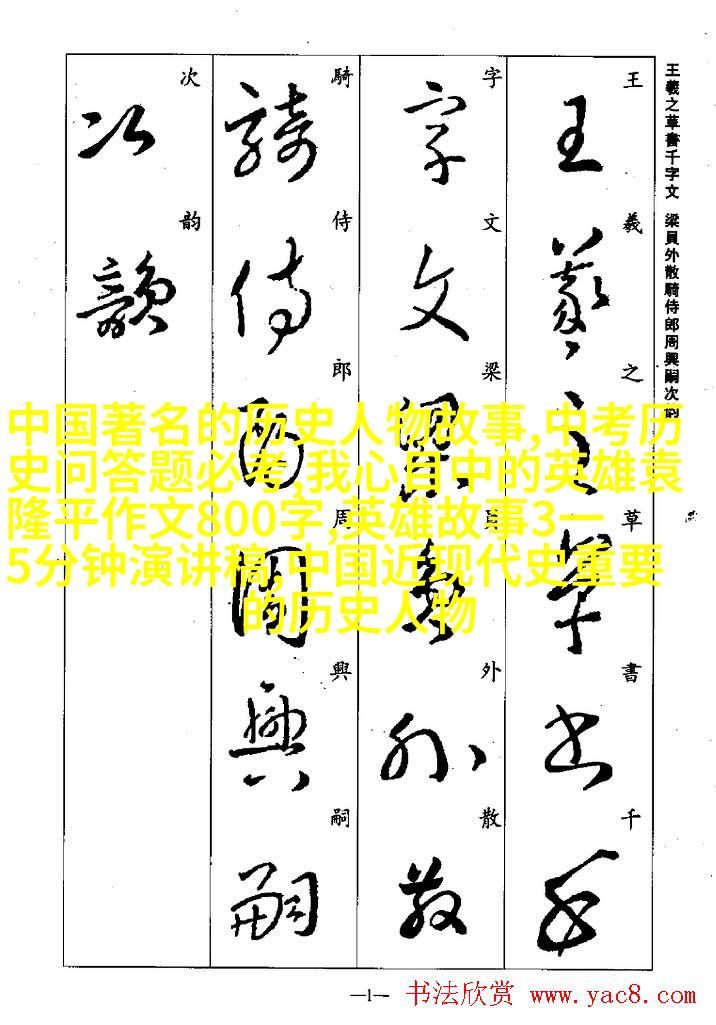 王羲之草書千字文 梁員外散騎侍郎周興嗣次韵
王羲之草書千
字文梁員外散
騎侍郎周興嗣
次韵
王羲之草書千
字文梁員外散
騎侍郎周興嗣
次韵
中国著名的历史人物故事,中考历
史问答题必考,我心目中的英雄袁
隆平作文800字,英雄故事3一
5分钟演讲稿,中国近现代史重要
的历史人物
—1—
书法欣赏 www.yac8.com